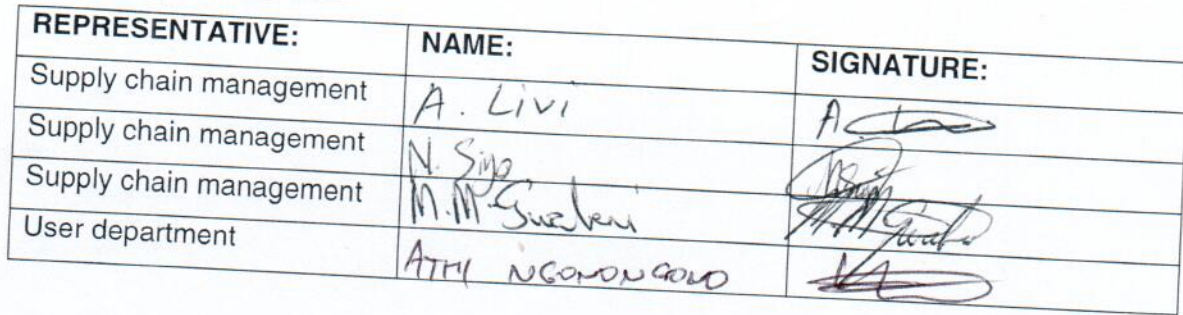 REPRESENTATIVE: NAME: SIGNATURE:
Supply chain management A. Livi
Supply chain management N.
Supply chain management M.M
User department ATHI